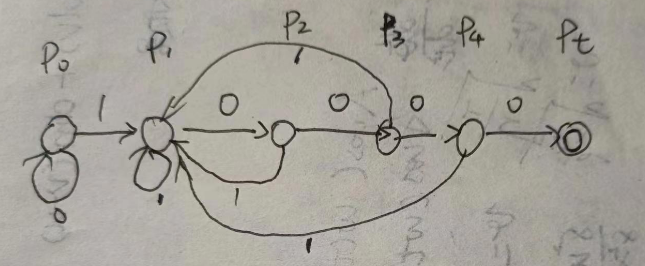 P₀ P₁ P₂ P₃ P₄ Pt
1 0 0 0 0
1
0 1 1
1